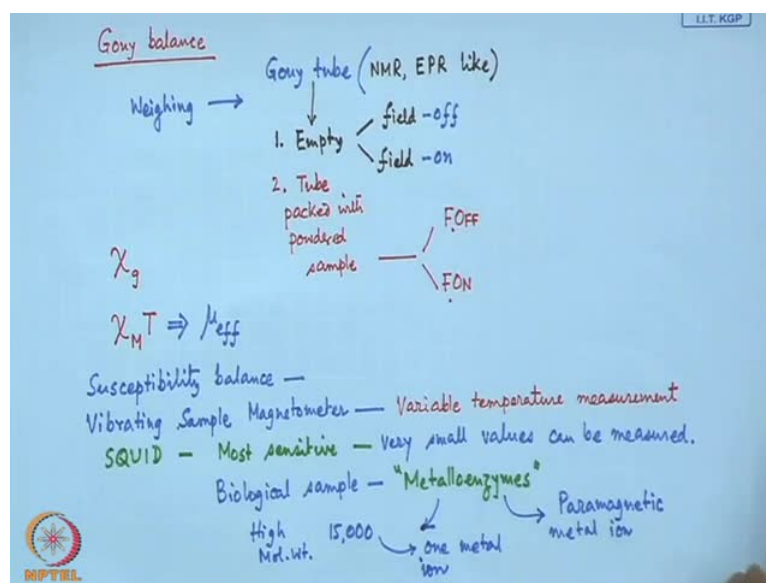 I.I.T. KGP
Gouy balance
Gouy tube (NMR, EPR like)
Weighing →
1. Empty
field - off
field - on
2. Tube
packed with
powdered
sample
F.OFF
F.ON
χg
χM T ⇒ μeff
Susceptibility balance —
Vibrating Sample Magnetometer — Variable temperature measurement
SQUID — Most sensitive — very small values can be measured.
Biological sample — "Metalloenzymes"
High
Mol. Wt.
15,000
one metal
ion
Paramagnetic
metal ion
NPTEL